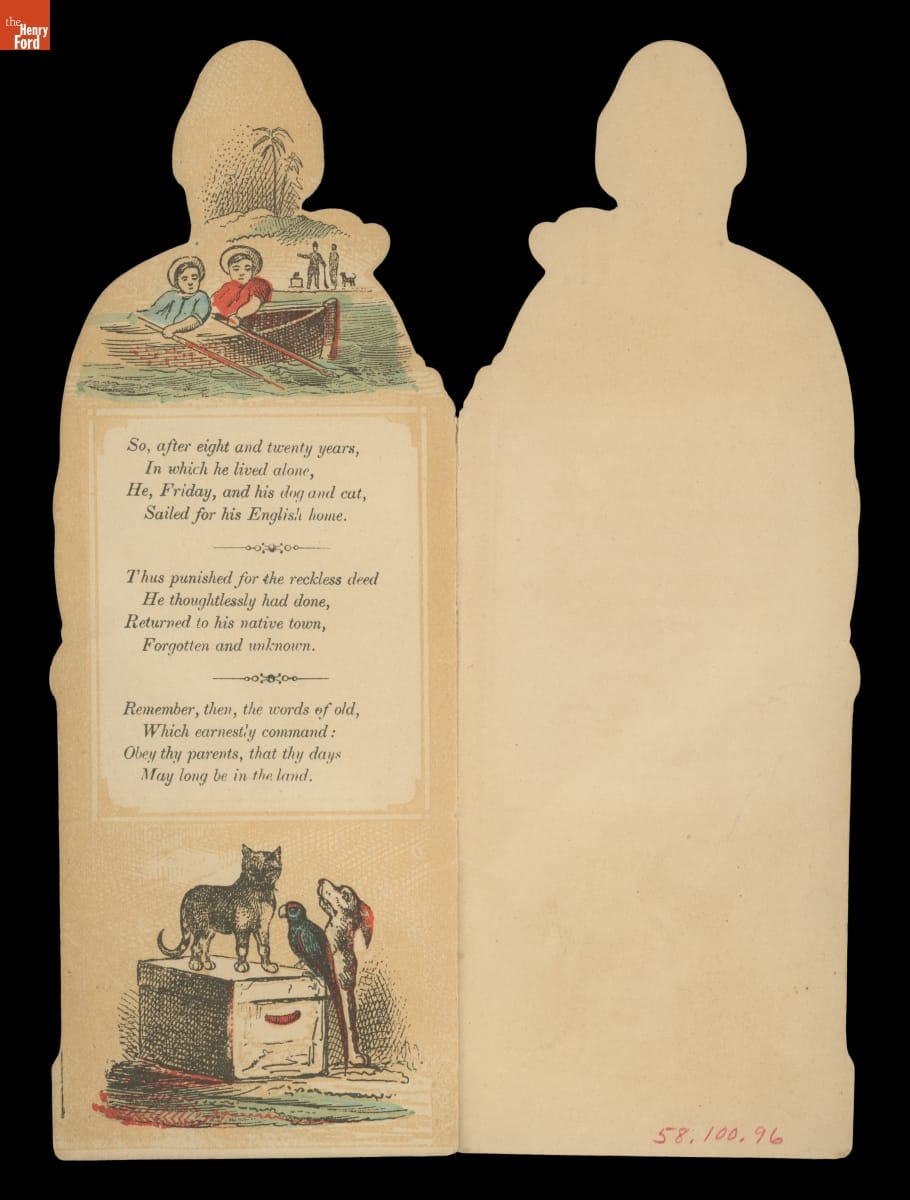 the
Henry
Ford
So, after eight and twenty years,
In which he lived alone,
He, Friday, and his dog and cat,
Sailed for his English home.
Thus punished for the reckless deed
He thoughtlessly had done,
Returned to his native town,
Forgotten and unknown.
Remember, then, the words of old,
Which earnestly command:
Obey thy parents, that thy days
May long be in the land.
58.100.96